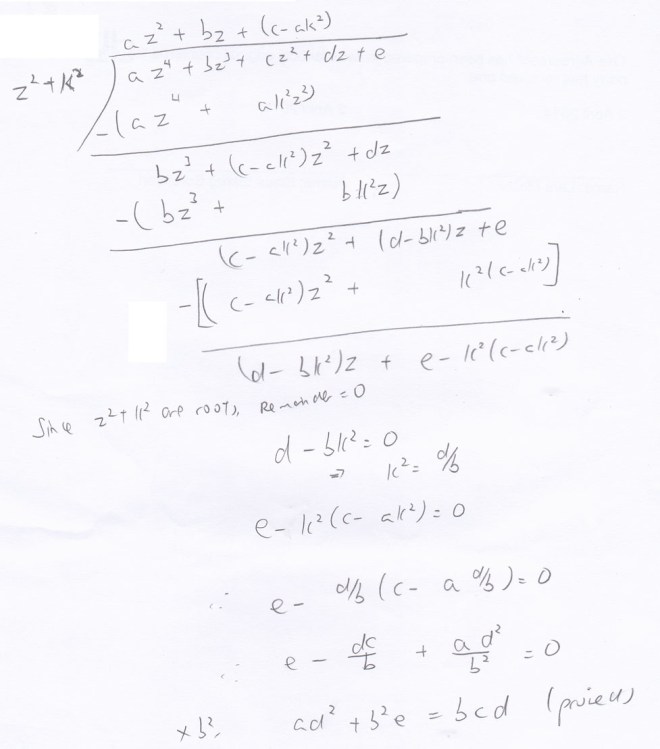 az² + bz + (c-ak²)
z² + k² ) az⁴ + bz³ + cz² + dz + e
-(az⁴ + ak²z²)
bz³ + (c-ak²)z² + dz
-(bz³ + bk²z)
(c-ak²)z² + (d-bk²)z + e
-[(c-ak²)z² + k²(c-ak²)]
(d-bk²)z + e-k²(c-ak²)
Since z²+k² are roots, Remainder = 0
d-bk² = 0
⇒ k² = d/b
e-k²(c-ak²) = 0
∴ e- d/b (c- a d/b) = 0
∴ e - dc/b + ad²/b² = 0
×b², ad² + b²e = bcd (proved)